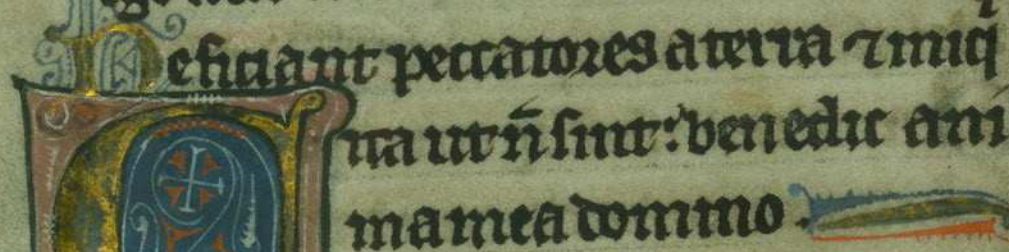 Deficiant peccatores a terra ⁊ iniq
ita ut n̄ sint: benedic ani
ma mea domino.